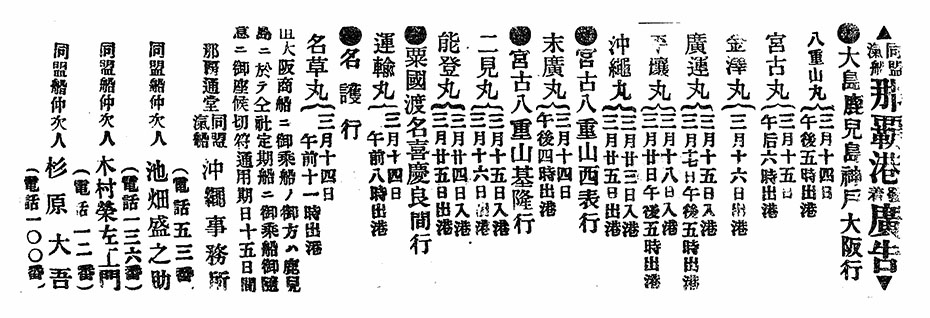 ▲同盟汽船那覇港発着廣告▼
●大島鹿兒島神戸大阪行
八重山丸{三月十四日午後五時出港
宮古丸{三月十五日午后六時出港
金澤丸{三月十六日出港
廣運丸{三月十五日入港三月十七日午後五時出港
平壤丸{三月十八日入港三月廿日午後五時出港
沖繩丸{三月廿三日入港三月廿五日出港
●宮古八重山西表行
末廣丸{三月十四日午後四時出港
●宮古八重山基隆行
二見丸{三月十四日入港三月十六日出港
能登丸{三月廿四日入港三月廿五日出港
●粟國渡名喜慶良間行
運輸丸{三月十四日午前八時出港
●名護行
名草丸{三月十四日午前十一時出港
大阪商船ニ御乘船ノ御方ハ鹿兒
島ニ於テ仝社定期船ニ御乘船御隨
意ニ御座候切符通用期日十五日間
那覇通堂同盟汽船沖繩事務所
(電話五三番)
同盟船仲次人池畑盛之助
(電話一三六番)
同盟船仲次人木村榮左工門
(電話一二番)
同盟船仲次人杉原大吾
(電話一〇〇番)